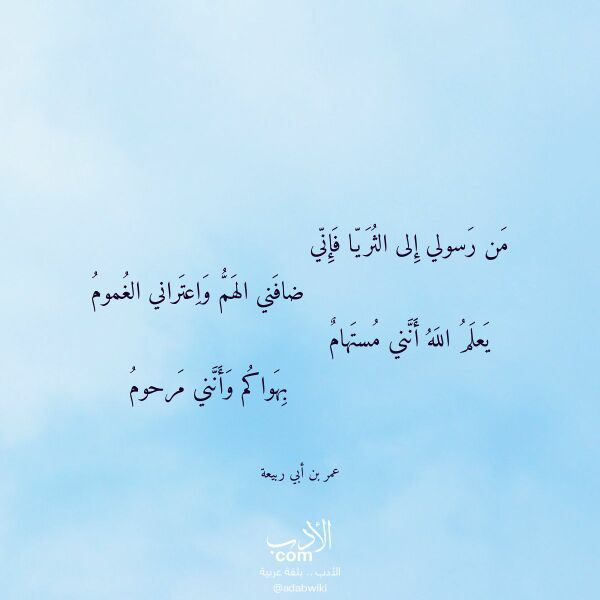 مَن رَسولي إِلى الثُرَيّا فَإِنّي
ضافَني الهَمُّ وَاِعتَراني الغُمومُ
يَعلَمُ اللَهُ أَنَّني مُستَهامٌ
بِهَواكُم وَأَنَّني مَرحومُ
عمر بن أبي ربيعة
الأدب
com
الأدب .. بلغة عربية
@adabwiki